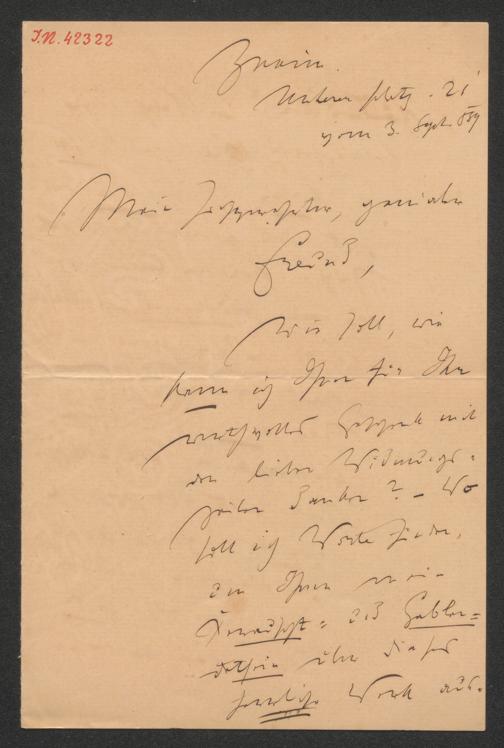 I.N. 42322
Znaim.
Unterer Platz. 21
vom 3. Sept. 889
Mein hochverehrter, genialer
Freund,
Wie soll, wie
kann ich Ihnen für Ihr
werthvolles Geschenk mit
den lieben Widmungs=
zeilen danken? – Wo
soll ich Worte finden,
um Ihnen mein
über dieses
herrliche Werk aus-